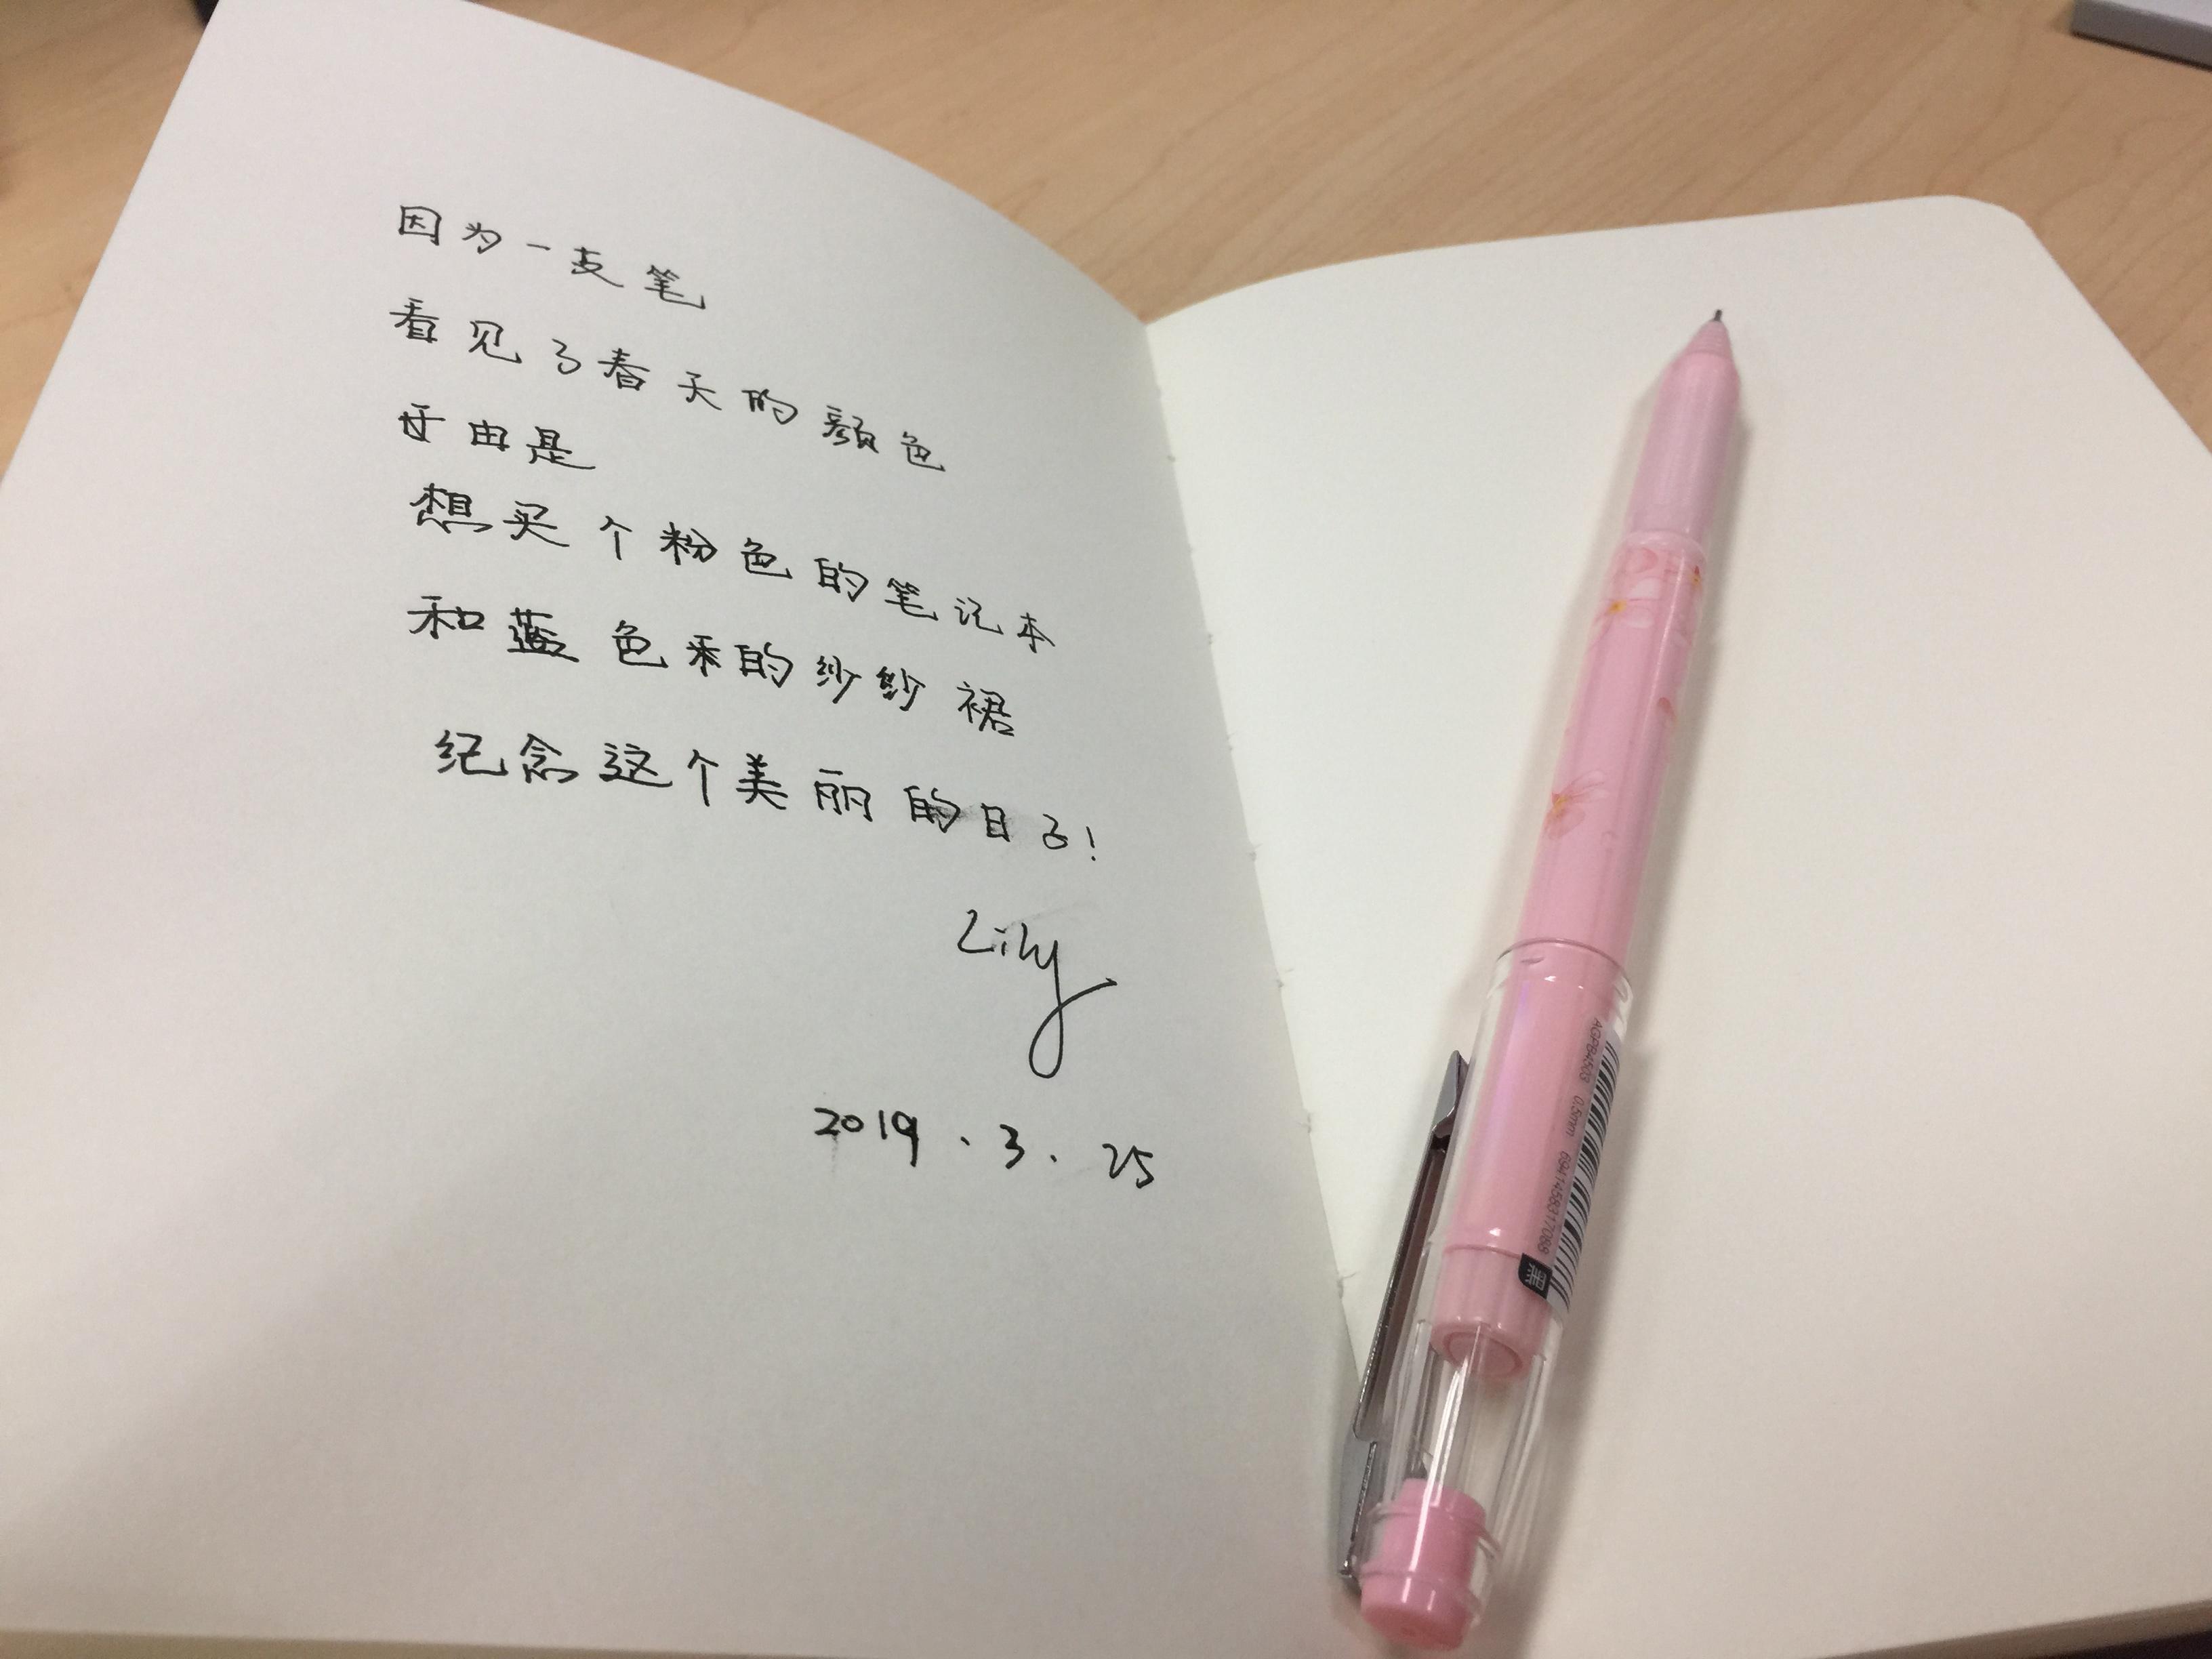 因为一支笔
看见了春天的颜色
于由是
想买个粉色的笔记本
和蓝色的纱纱裙
纪念这个美丽的日子!
Lily
2019.3.25
AGPB4503 0.5mm 6941458317088 黑